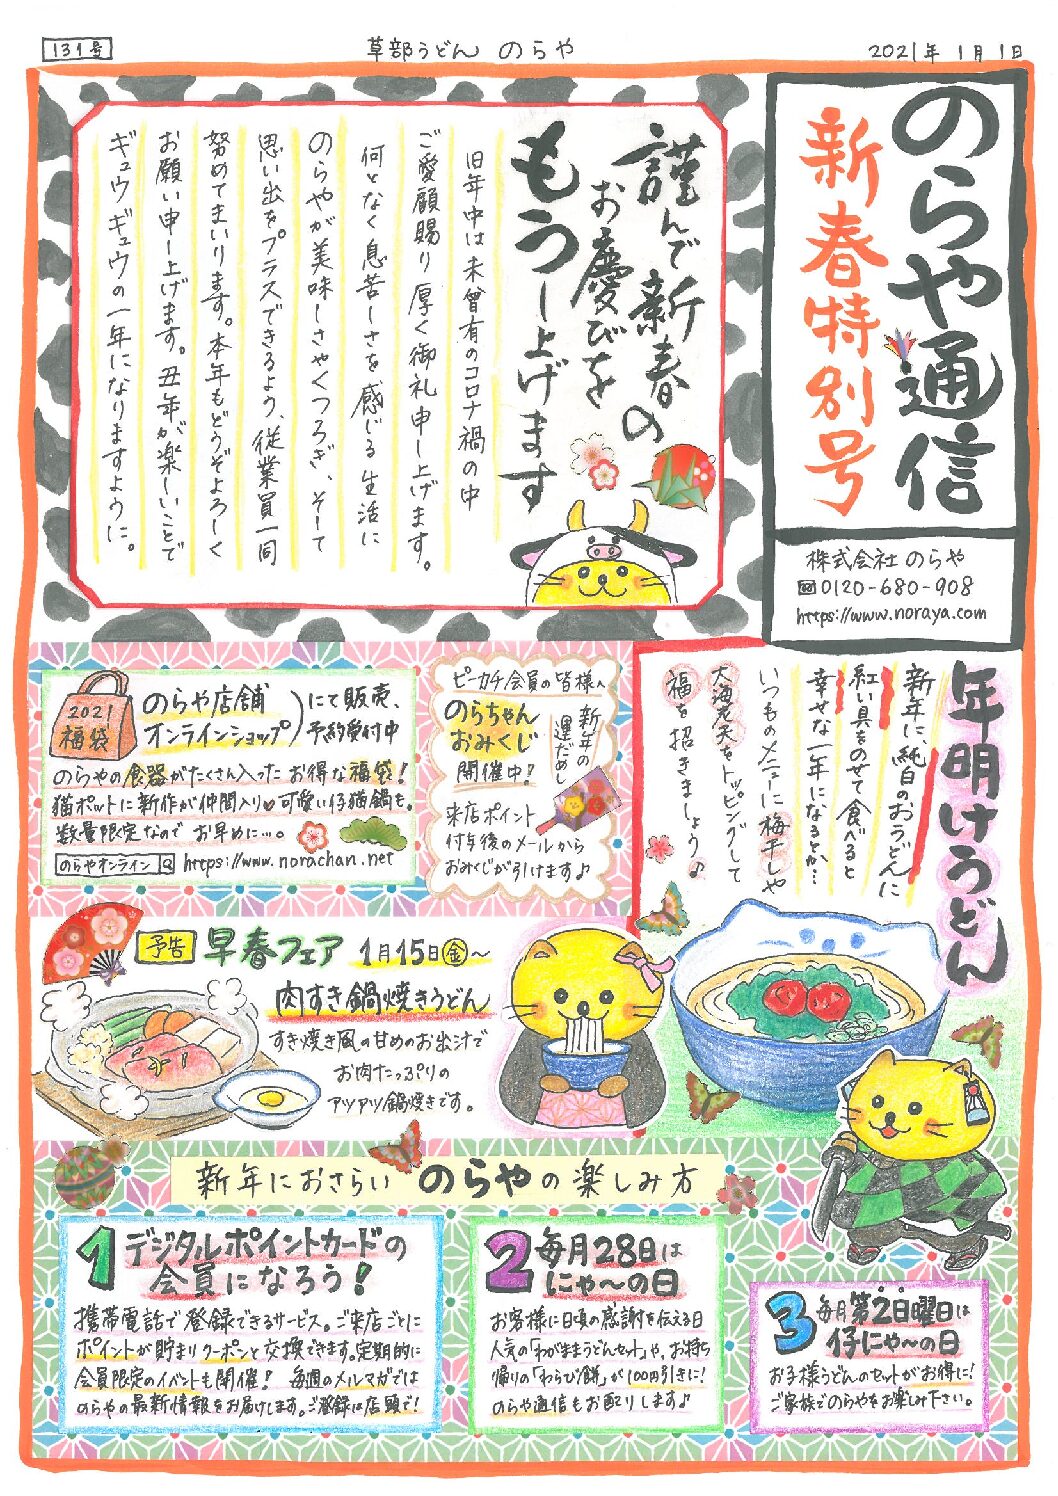 131号
草部うどん のらや
2021年 1月 1日
のらや通信
新春特別号
株式会社 のらや
0120-680-908
https://www.noraya.com
謹んで新春の
お慶びを
もうし上げます
旧年中は未曾有のコロナ禍の中
ご愛顧賜り厚く御礼申し上げます。
何となく息苦しさを感じる生活に
のらやが美味しさやくつろぎ、そして
思い出をプラスできるよう、従業員一同
努めてまいります。本年もどうぞよろしく
お願い申し上げます。丑年が楽しいことで
ギュウギュウの一年になりますように。
2021
福袋
のらや店舗
オンラインショップ
にて販売、
予約受付中
のらやの食器がたくさん入ったお得な福袋!
猫ポットに新作が仲間入り♥可愛い仔猫鍋も。
数量限定なので お早めに…。
のらやオンライン
https://www.norachan.net
ピーカチ会員の皆様へ
のらちゃん
おみくじ
開催中!!
新年の
運だめし
来店ポイント
付与後のメールから
おみくじが引けます♪
年明けうどん
新年に純白のおうどんに
紅い具をのせて食べると
幸せな一年になるとか…
いつものメニューに梅干しや
大海老天をトッピングして
福を招きましょう♪
予告
早春フェア 1月15日金~
肉すき鍋焼きうどん
すき焼き風の甘めのお出汁で
お肉たっぷりの
アツアツ鍋焼きです。
新年におさらい のらやの楽しみ方
1 デジタルポイントカードの
会員になろう!
携帯電話で登録できるサービス。ご来店ごとに
ポイントが貯まりクーポンと交換できます。定期的に
会員限定のイベントも開催! 毎週のメルマガでは
のらやの最新情報をお届けします。ご登録は店頭で!
2 毎月28日は
にゃ~の日
お客様に日頃の感謝を伝える日
人気の「わがままうどんセット」や、お持ち
帰りの「わらび餅」が100円引きに!
のらや通信もお配りします♪
3 毎月第2日曜日は
仔にゃ~の日
お子様うどんのセットがお得に!
ご家族でのらやをお楽しみ下さい。